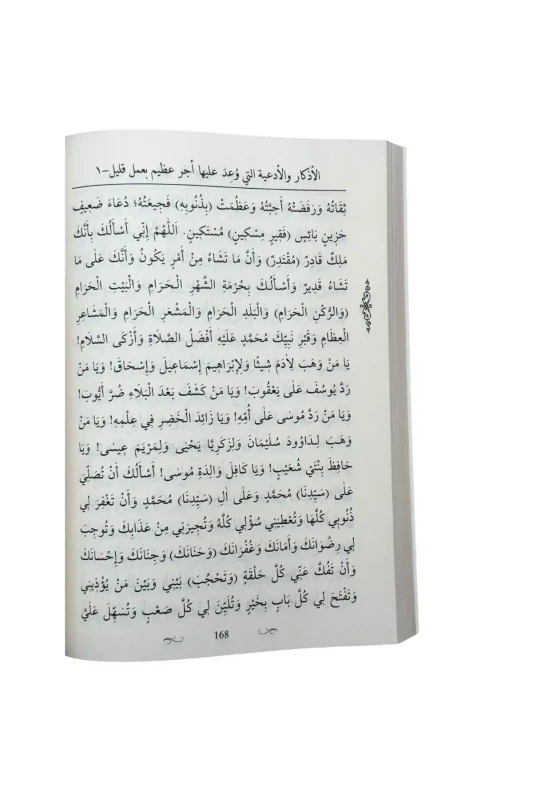 الأذكار والأدعية التي وُعِدَ عليها أجر عظيم بعمل قليل-١
ثِقَاتُهُ وَرَفَضَتْهُ أَحِبَّتُهُ وَعَظُمَتْ (بِذُنُوبِهِ) فَجِيعَتُهُ؛ دُعَاءَ ضَعِيفٍ
حَزِينٍ بَائِسٍ (فَقِيرٍ مِسْكِينٍ) مُسْتَكِينٍ. اَللّٰهُمَّ إِنِّي أَسْأَلُكَ بِأَنَّكَ
مَلِكٌ قَادِرٌ (مُقْتَدِرٌ) وَأَنَّ مَا تَشَاءُ مِنْ أَمْرٍ يَكُونُ وَأَنَّكَ عَلٰى مَا
تَشَاءُ قَدِيرٌ وَأَسْأَلُكَ بِحُرْمَةِ الشَّهْرِ الْحَرَامِ وَالْبَيْتِ الْحَرَامِ
(وَالرُّكْنِ الْحَرَامِ) وَالْبَلَدِ الْحَرَامِ وَالْمَشْعَرِ الْحَرَامِ وَالْمَشَاعِرِ
الْعِظَامِ وَقَبْرِ نَبِيِّكَ مُحَمَّدٍ عَلَيْهِ أَفْضَلُ الصَّلَاةِ وَأَزْكَى السَّلَامِ!
يَا مَنْ وَهَبَ لِاٰدَمَ شِيثًا وَلِإِبْرَاهِيمَ إِسْمَاعِيلَ وَإِسْحَاقَ! وَيَا مَنْ
رَدَّ يُوسُفَ عَلٰى يَعْقُوبَ! وَيَا مَنْ كَشَفَ بَعْدَ الْبَلَاءِ ضُرَّ أَيُّوبَ!
وَيَا مَنْ رَدَّ مُوسٰى عَلٰى أُمِّهِ! وَيَا زَائِدَ الْخَضِرِ فِي عِلْمِهِ! وَيَا مَنْ
وَهَبَ لِدَاوُودَ سُلَيْمَانَ وَلِزَكَرِيَّا يَحْيٰى وَلِمَرْيَمَ عِيسٰى! وَيَا
حَافِظَ بِنْتَيْ شُعَيْبٍ! وَيَا كَافِلَ وَالِدَةِ مُوسٰى! أَسْأَلُكَ أَنْ تُصَلِّيَ
عَلٰى (سَيِّدِنَا) مُحَمَّدٍ وَعَلٰى اٰلِ (سَيِّدِنَا) مُحَمَّدٍ وَأَنْ تَغْفِرَ لِي
ذُنُوبِي كُلَّهَا وَتُعْطِيَنِي سُؤْلِي كُلَّهُ وَتُجِيرَنِي مِنْ عَذَابِكَ وَتُوجِبَ
لِي رِضْوَانَكَ وَأَمَانَكَ وَغُفْرَانَكَ (وَحَنَانَكَ) وَجِنَانَكَ وَإِحْسَانَكَ
وَأَنْ تَفُكَّ عَنِّي كُلَّ حَلْقَةٍ (وَتَحْجُبَ) بَيْنِي وَبَيْنَ مَنْ يُؤْذِينِي
وَتَفْتَحَ لِي كُلَّ بَابٍ بِخَيْرٍ وَتُلَيِّنَ لِي كُلَّ صَعْبٍ وَتُسَهِّلَ عَلَيَّ
168